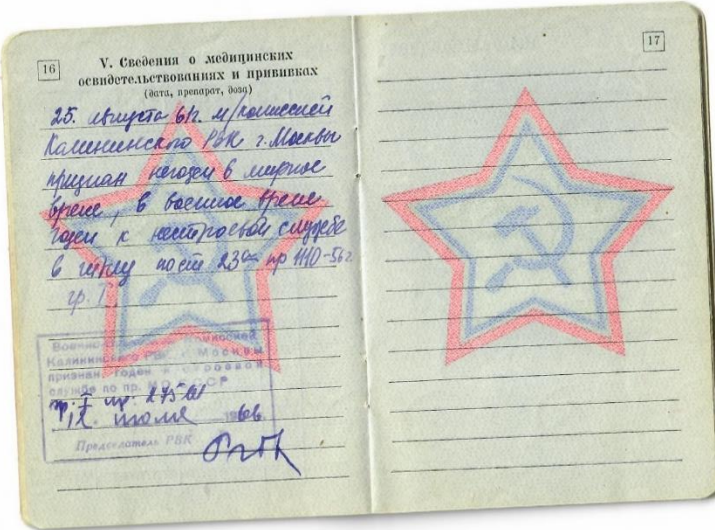 16
V. Сведения о медицинских
освидетельствованиях и прививках
(дата, препарат, доза)
25. августа 61г. м/комиссией
Калининского РВК г. Москвы
признан негоден в мирное
время, в военное время
годен к нестроевой службе
в силу пост 23а пр 1110-56г.
гр. I
Калининского РВК г. Москвы
признан годен к строевой
службе по пр. МО СССР
гр. I пр. 275-61
12. июля 1966
Председатель РВК
17